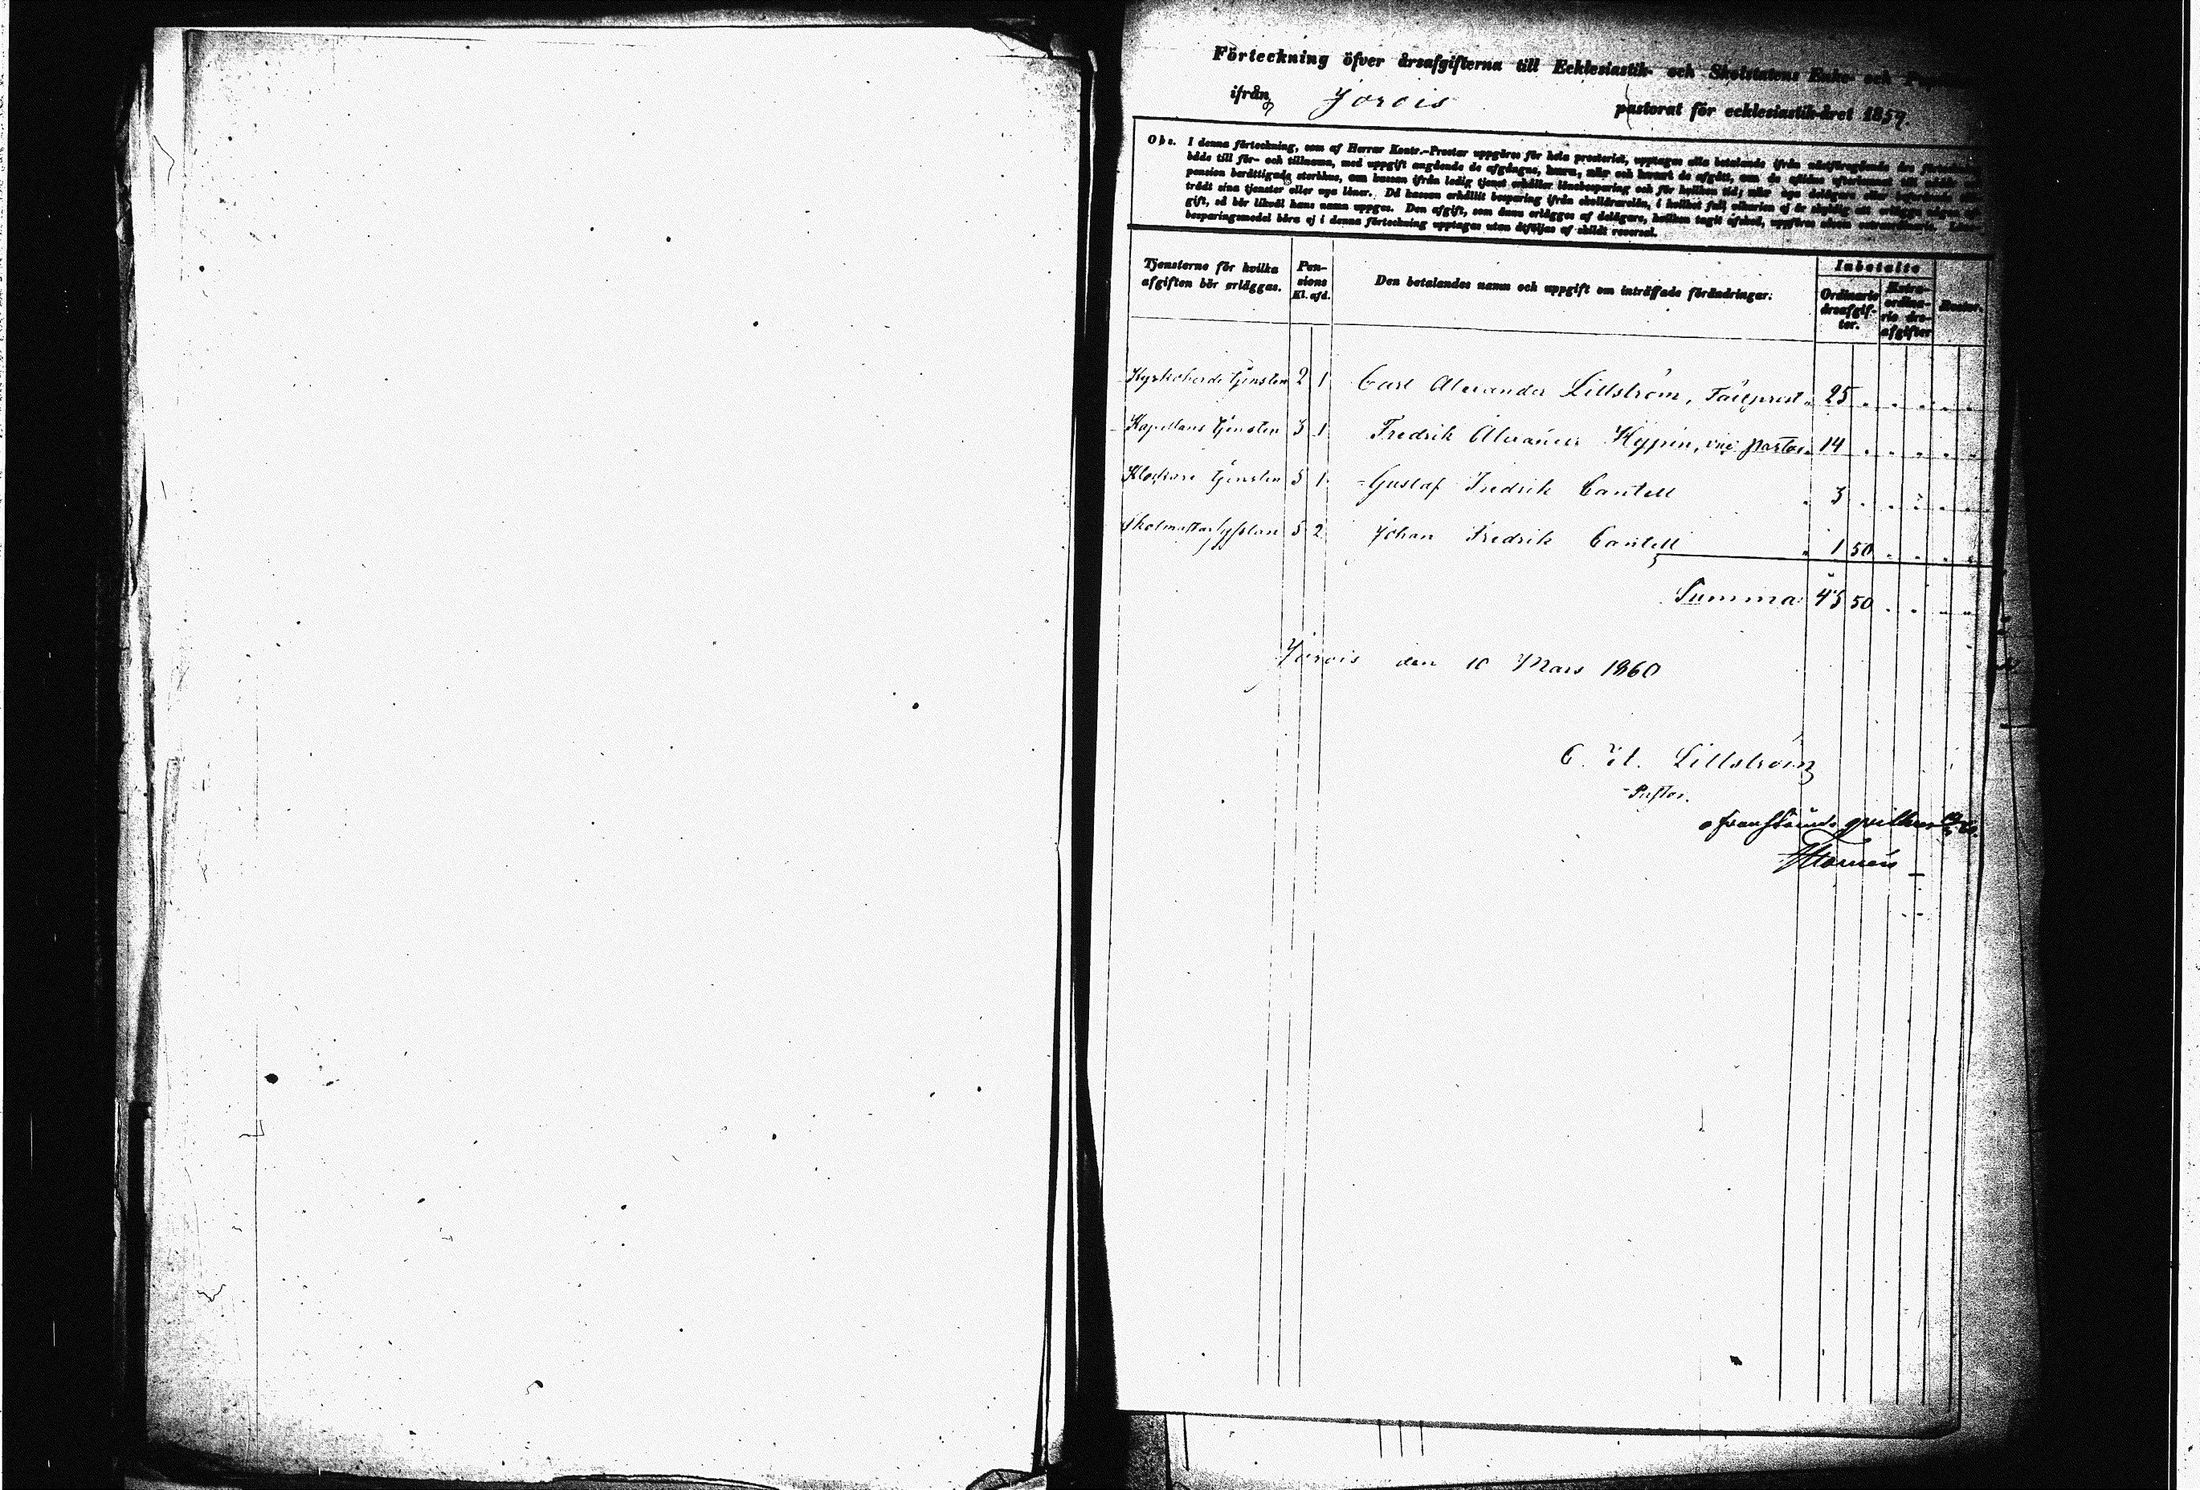 Förteckning öfver årsafgifterna till Ecklesiastik- och Skolstatens Enke- och
ifrån Jorois pastorat för ecklesiastik-året 1859.
Obs. I denna förteckning, som af Herrar Kontr.-Prostar uppgöres för hela prosteriet, upptagas alla betalande ifrån
både till för- och tillnamn, med uppgift angående de afgångne, huru, när och hvart de afgått, om de aflidne efterlemnat
pension berättigade sterbhus, om kassan ifrån ledig tjenst erhåller lönebesparing och för hvilken tid; när nye delägare
trädt sina tjenster eller nya löner. Då kassan erhållit besparing ifrån skollärarelön, i hvilket fall
gift, så bör likväl hans namn uppges. Den afgift, som ännu erlägges af delägare, hvilken tagit afsked, uppföres såsom extraordinarie.
besparingsmedel böra ej i denna förteckning upptagas utan åtföljas af skildt reversal.
Tjensterne för hvilka afgiften bör erläggas. Pensions Kl. afd. Den betalandes namn och uppgift om inträffade förändringar. Inbetalte Ordinarie årsafgifter. Extraordinarie årsafgifter Rester.
Kyrkoherde tjensten 2 1 Carl Alexander Lillström, Fältprost " 25 " " " " "
Kapellans tjensten 3 1 Fredrik Alexander Hyppin, vice pastor " 14 " " " " "
Klockare tjensten 5 1 Gustaf Fredrik Cantell " 3 " " " " "
5 2 Johan Fredrik Cantell " 1 50 " " " "
Summa 43 50 " " " "
Jorois den 10 Mars 1860
C. A. Lillström
Pastor.